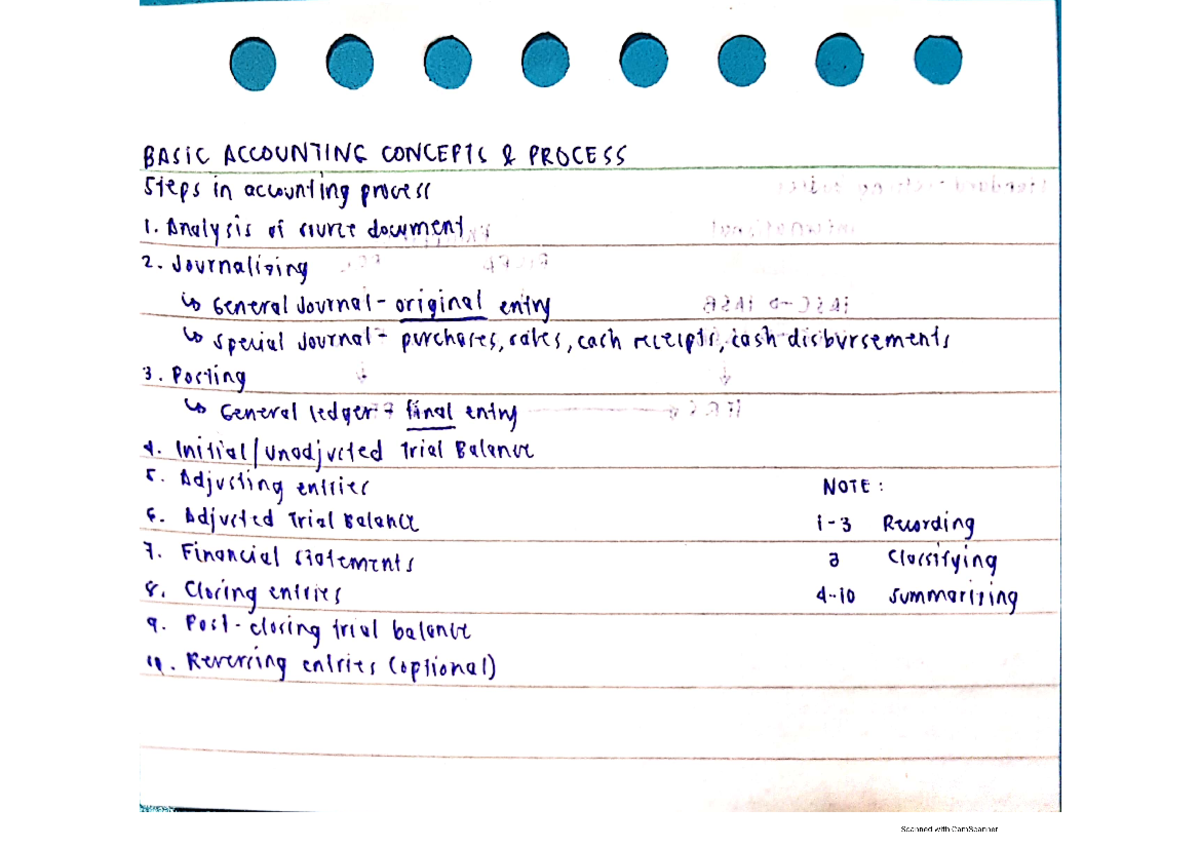 BASIC ACCOUNTING CONCEPTS & PROCESS
Steps in accounting process
1. Analysis of source document
2. Journalizing
↳ General Journal - original entry
↳ Special Journal - purchases, sales, cash receipts, cash disbursements
3. Posting
↳ General ledger → final entry
4. Initial/Unadjusted Trial Balance
5. Adjusting entries
6. Adjusted Trial Balance
7. Financial statements
8. Closing entries
9. Post-closing trial balance
10. Reversing entries (optional)
NOTE :
1-3 Recording
3 Classifying
4-10 Summarizing
Scanned with CamScanner